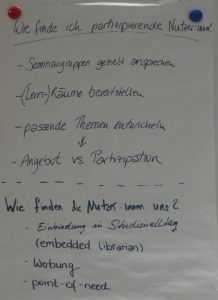 Wie finde ich partizipierende Nutzer:innen?
- Seminargruppen gezielt ansprechen
- (Lern-)Räume bereitstellen
- passende Themen entwickeln
↓
- Angebot vs Partizipation
Wie finden die Nutzer:innen uns?
- Einbindung in Studienalltag
(embedded librarian)
- Werbung
- point-of-need